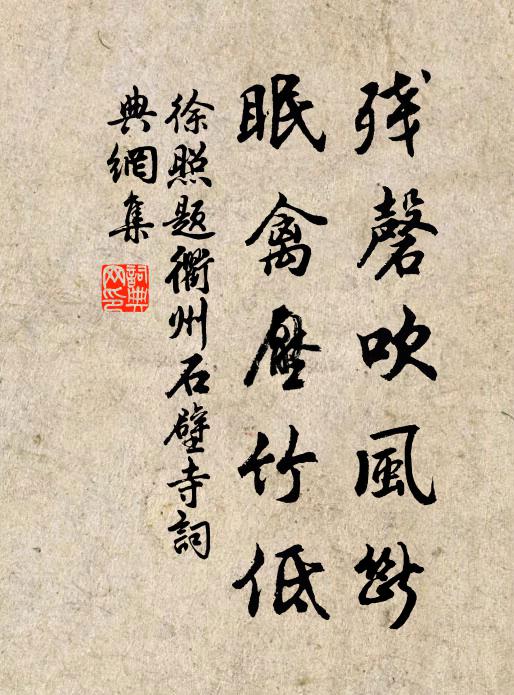 残磬吹風斷
眠禽壓竹低
徐照题衢州石壁寺詞
典網集
詞典網印